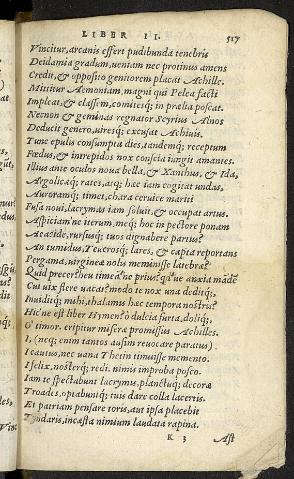 LIBER II. 527
Vincitur, arcanis effert pudibunda tenebris
Deidamia gradum, ueniam nec protinus amens
Credit, & opposito genitorem placat Achille.
Mittitur Aemoniam, magni qui Pelea facti
Impleat, & classem, comitesq; in prælia poscat.
Necnon & geminas regnator Scyrius Alnos
Deducit genero, uires q; excusat Achiuis.
Tunc epulis consumpta dies, tandem q; receptum
Fœdus, & intrepidos nox conscia iungit amantes.
Illius ante oculos noua bella, & Xanthus, & Ida,
Argolicæ q; rates, atq; hæc iam cogitat undas,
Auroram q; timet, chara ceruice mariti
Fusa noui, lacrymas iam soluit, & occupat artus.
Aspiciam ne iterum, me q; hoc in pectore ponam
Aeacide, rursus q; tuos dignabere partus?
An tumidus, Teucros q; lares, & capta reportans
Pergama, uirgineæ nolis meminisse latebræ?
Quid precer? heu timeā ne prius? quid ue anxia māde
Cui uix flere uacat? modo te nox una dedit q;,
Inuidit q; mihi, thalamis hæc tempora nostris?
Hic ne est liber Hymen? ô dulcia furta, doli q;,
O' timor. eripitur miseræ promissus Achilles.
I, (nec q; enim tantos ausim reuocare paratus)
I cautus, nec uana Thetin timuisse memento.
I felix, noster q; redi. nimis improba posco.
Iam te spectabunt lacrymis, planctu q; decoræ
Troades, optabunt q; tuis dare colla lacertis.
Et patriam pensare toris, aut ipsa placebit
Tyndaris, incæsta nimium laudata rapina.
K 3 Ast